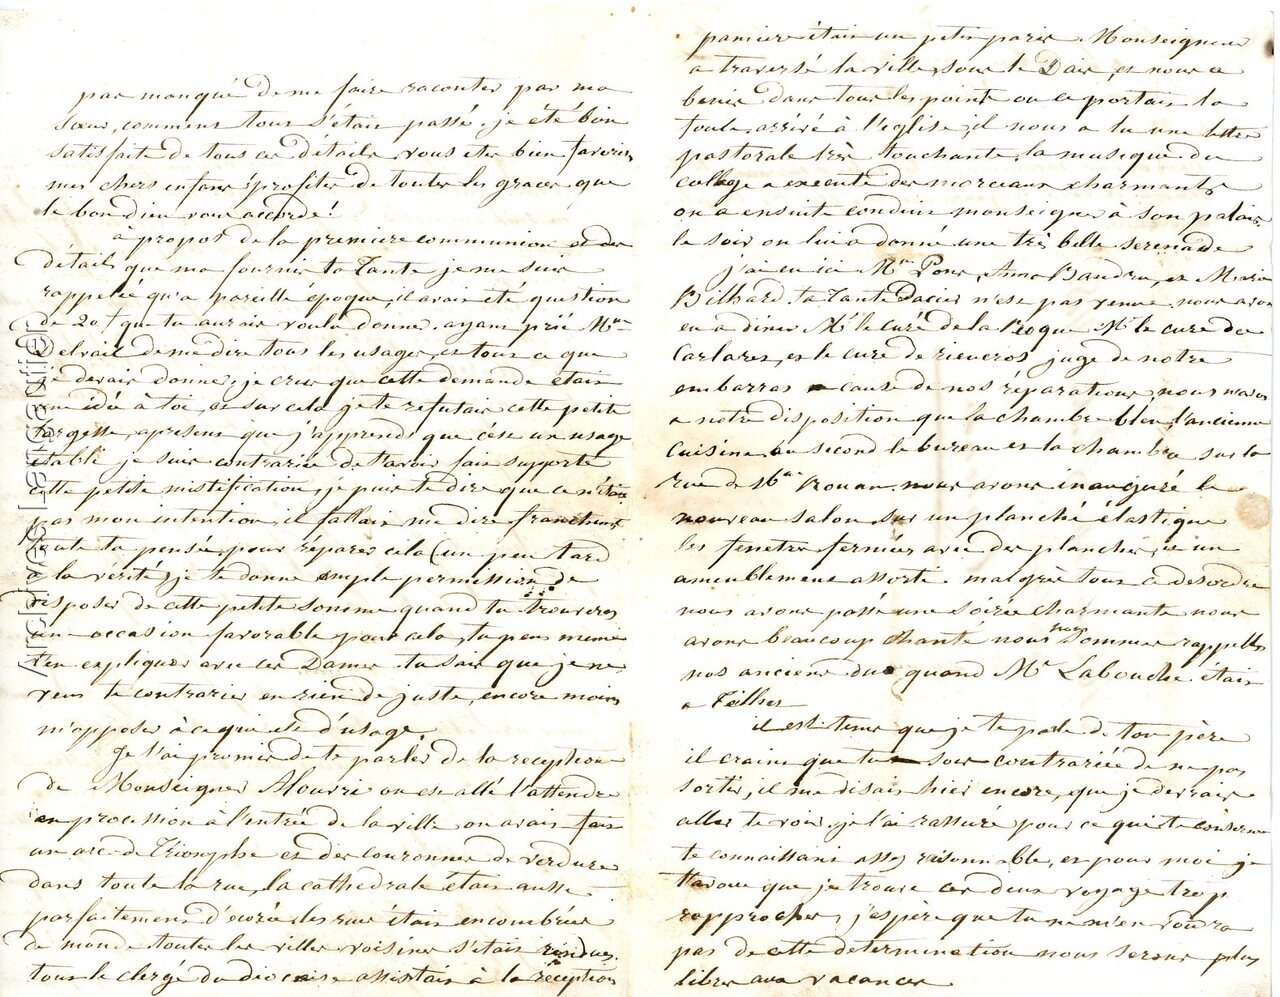 pas manqué de me faire raconter par ma
sœur, comment tous s'étais passé. je été bien
satisfaite de tous ces détails vous etes bien favorises
mes chers enfans profiter de toutes les graces que
le bon dieu vous accorde!
à propos de la premiere communion et des
détails que ma fournis ta Tante je me suis
rappelé qu'a pareille époque, il avais été question
de 20f que tu aurais voulu donner. ayant prié Mme
Delrail de me dire tous les usages, et tous ce que
je devais donner, je crus que cette demande était
une idée à toi, et sur cela je te refusais cette petite
largesse, apresent que j'apprends que c'est un usage
établi je suis contrariée de t'avoir fais supporté
cette petite mistification, je puis te dire que ce n'étais
pas mon intention, il fallais me dire franchement
toute ta pensée, pour réparer cela (un peu tard
a la vérité) je te donne ample permission de
disposer de cette petite somme quand tu trouveras
une occasion favorable pour cela, tu peus meme
t'en expliquer avec ces Dames. tu sais que je ne
veus te contrarier en rien de juste, encore moins
m'opposer à ce qui est d'usage.
Je t'ai promis de te parler de la reception
de Monseigneur Alouvri on est allé l'attendre
en procession à l'entrée de la ville on avais fais
un arc de Triomphe et des couronnes de verdure
dans toute la rue, la cathedrale étais aussi
parfaitement d'écorée les rues étais encombrées
de monde toutes les villes voisines s'étais rendues.
tous le clergé du diocese assistais à la reception
pamiers étais un petit paris Monseigneur
a traversé la ville sous le Dais, et nous a
benis dans tous les points ou ce portais la
foule, arrivé à l'eglise, il nous a lu une lettre
pastorale très touchante, la musique du
collége a executé des morceaux charmants
on a ensuite conduis monseigneur à son palais.
le soir on lui a donné une très belle serenade
j'ai eu ici Mme Pons, Anna Baudru, et Maria
Bilhard ta Tante Dacier n'est pas venue. nous avons
eu a diner Mr le curé de la Roque Mr le cure de
Carlares, et le cure de rieucros juge de notre
embarras a cause de nos réparations, nous n'avons
a notre disposition que la chambre bleu, l'ancienne
cuisine, au second le bureau et la chambre sur la
rue de Mme Rouan. nous avons inauguré le
nouveau salon sur un planché élastique
les fenetres fermées avec des planches, et un
ameublement assorti. malgrès tous ce desordre
nous avons passé une soirée charmante nous
avons beaucoup chanté nous nous sommes rappellés
nos anciens duo quand Mr Labouche étais
a Tilhes
il est tems que je te parle de ton père
il crains que tu sois contrariée de ne pas
sortir, il me disais hier encore, que je devrais
aller te voir, je l'ai rassuré pour ce qui te conserne
te connaissant assez résonnable, et pour moi je
t'avoue que je trouve ces deux voyage trop
rapprochés, j'espère que tu ne m'en voudra
pas de cette determination nous serons plus
libres aux vacances
Archives Lamsanttier